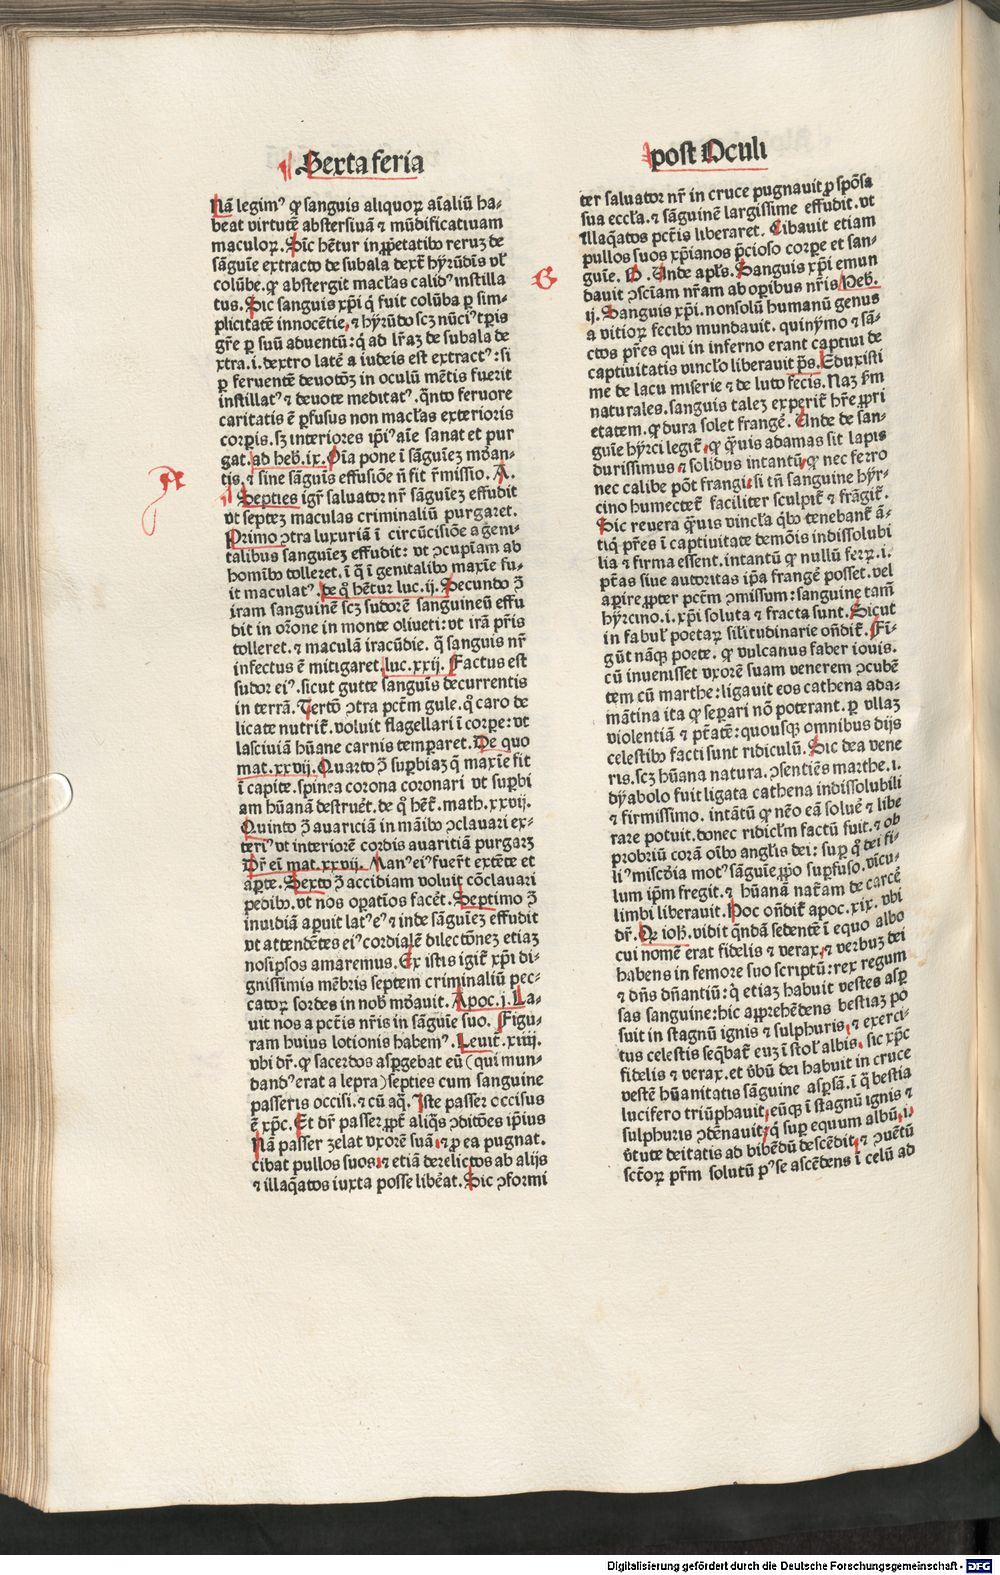 Sexta feria
Nã legimꝰ ꝙ sanguis aliquoꝝ aĩaliũ ha-
beat virtutẽ abstersiuã ⁊ mũdificatiuam
maculoꝝ. Sic hẽtur in ꝓpetatibꝰ reruꝫ de
sãguĩe extracto de subala dext᷑ hyrũdĩs vł
colũbe. ꝙ abstergit macłas calidꝰ instilla
tus. Sic sanguis xp̃i q̃ fuit colũba ꝑ sim-
plicitatẽ innocẽtie, ⁊ hyrũdo scꝫ nũciꝰ tꝑis
gr̃e ꝑ suũ aduentũ: q̃ ad lr̃aꝫ de subala de
xtra .i. dextro latẽ a iudeis est extractꝰ: si
ꝑ feruentẽ deuotõꝫ in oculũ mẽtis fuerit
instillatꝰ ⁊ deuote meditatꝰ. q̃nto feruore
caritatis ẽ ꝑfusus non macłas exterioris
corꝑis. sꝫ interiores ip̃iꝰ aĩe sanat et pur
gat. ad heb̃. ix. Oĩa pone ĩ sãguĩeꝫ mũdan-
tis, ⁊ sine sãguĩs effusiõe ñ fit r̃missio. A.
Septies igit᷑ saluator nr̃ sãguĩeꝫ effudit
vt septeꝫ maculas criminaliũ purgaret.
Primo ↄtra luxuriã ĩ circũcisiõe a geni-
talibus sanguĩeꝫ effudit: vt ↄcupĩam ab
homĩbꝰ tolleret. ĩ q̃ ĩ genitalibꝰ maxĩe fu-
it maculatꝰ. de q̊ hẽtur luc. ij. Secundo ↄ̃
iram sanguinẽ scꝫ sudorẽ sanguineũ effu
dit in or̃one in monte oliueti: vt irã pr̃is
tolleret. ⁊ maculã iracũdie. q̃ sanguis nr̃
infectus ẽ mitigaret. luc. xxij. Factus est
sudor eiꝰ. sicut gutte sanguĩs decurrentis
in terrã. Tertõ ↄtra pctm̃ gule. q̊ caro de
licate nutrit᷑. voluit flagellari ĩ corpe: vt
lasciuiã hũane carnis temparet. De quo
mat. xxvij. Quarto ↄ̃ supbiaꝫ q̃ maxĩe fit
ĩ capite. spinea corona coronari vt supbi
am hũanã destruet᷑. de q̊ het᷑. math. xxvij.
Quinto ↄ̃ auariciã in mãibꝰ ↄclauari ex-
teriꝰ vt interiorẽ cordis auaritiã purgarꝫ
Dr̃ eĩ mat. xxvij. Manꝰ eiꝰ fuer̃t extẽte et
apte. Sexto ↄ̃ accidiam voluit cõclauari
pedibꝰ. vt nos opatĩos facẽt. Septimo ↄ̃
inuidiã apuit latꝰ eꝰ ⁊ inde sãguĩeꝫ effudit
vt attendẽtes eiꝰ cordialẽ dilectõneꝫ etiaꝫ
nosipsos amaremus. Ex istis igit᷑ xp̃i di-
gnissimis mẽbris septem criminaliũ pec-
catoꝝ sordes in nob̃ mũdauit. Apoc. j. La-
uit nos a pctĩs nr̃is in sãguĩe suo. Figu-
ram huius lotionis habemꝰ. Leuit᷑. xiiij.
vbi dr̃. ꝙ sacerdos aspgebat eũ (qui mun-
dandꝰ erat a lepra) septies cum sanguine
passeris occisi. ⁊ cũ aq̃. Iste passer occisus
ẽ xp̃c. Et dr̃ passer ꝓpt᷑ aliq̃s ↄditões ip̃ius
Nã passer zelat vxorẽ suã, ⁊ ꝓ ea pugnat.
cibat pullos suos, ⁊ etiã derelictos ab alijs
⁊ illaq̃atos iuxta posse libẽat. Sic ↄformi
A
post Oculi
ter saluator nr̃ in cruce pugnauit ꝓ spõsa
sua eccl̃a. ⁊ sãguinẽ largissime effudit. vt
illaq̃atos pctĩs liberaret. Cibauit etiam
pullos suos xp̃ianos p̃cioso corpe et san-
guĩe. B. Unde apl̃s. Sanguis xp̃i emun
dauit ↄsciam nr̃am ab opibus nr̃is Heb.
ij. Sanguis xp̃i. nonsolũ humanũ genus
a vitioꝝ fecibꝰ mundauit. quinymo ⁊ sã-
ctos pr̃es qui in inferno erant captiui de
captiuitatis vincl̃o liberauit p̃s. Eduxisti
me de lacu miserie ⁊ de luto fecis. Naꝫ s̃m
naturales. sanguis taleꝫ experit᷑ hr̃e ꝓpri
etatem. ꝙ dura solet frangẽ. Unde de san-
guĩe hyrci legit᷑, ꝙ q̃uis adamas sit lapis
durissimus ⁊ solidus intantũ, ꝙ nec ferro
nec calibe põt frangi, si tñ sanguine hyr-
cino humectet᷑ faciliter sculpit᷑ ⁊ frãgit᷑.
Sic reuera q̃uis vincl̃a q̃bꝰ tenebant᷑ ã-
tiq̃ pr̃es ĩ captiuitate demõis indissolubi
lia ⁊ firma essent. intantũ ꝙ nullũ ferꝝ .i.
ptãs siue autoritas ip̃a frangẽ posset. vel
aperire ꝓpter pctm̃ ↄmissum: sanguine tam̃
hyrcino .i. xp̃i soluta ⁊ fracta sunt. Sicut
in fabul᷑ poetaꝝ silĩtudinarie oñdit᷑. Fi-
gũt nãqꝫ poete. ꝙ vulcanus faber iouis.
cũ inuenisset vxorẽ suam venerem ↄcubẽ
tem cũ marthe: ligauit eos cathena ada-
mãtina ita ꝙ separi nõ poterant. ꝑ vllaꝫ
violentiã ⁊ pt̃atẽ: quousqꝫ omnibus dijs
celestibꝰ facti sunt ridiculũ. Sic dea vene
ris. scꝫ hũana natura. ↄsentiẽs marthe .i.
dyabolo fuit ligata cathena indissolubili
⁊ firmissimo. intãtũ ꝙ nẽo eã soluẽ ⁊ libe
rare potuit. donec ridicl̃m factũ fuit. ⁊ ob
probriũ corã oĩbꝰ angl̃is dei: sup q̊ dei fi-
liꝰ miscdĩa motꝰ sãguĩe ꝓpo supfuso. vĩcu-
lum ip̃m fregit. ⁊ hũanã nat᷑am de carcẽ
limbi liberauit. Hoc oñdit᷑ apoc. xix. vbi
dr̃. Qꝛ ioh̃. vidit q̃ndã sedentẽ ĩ equo albo
cui nomẽ erat fidelis ⁊ verax, ⁊ verbuꝫ dei
habens in femore suo scriptũ: rex regum
⁊ dñs dñantiũ: q̃ etiaꝫ habuit vestes asp
sas sanguine: hic apprehẽdens bestiaꝫ po
suit in stagnũ ignis ⁊ sulphuris, ⁊ exerci-
tus celestis seq̃bat᷑ euꝫ ĩ stol᷑ albis, sic xp̃c
fidelis ⁊ verax. et v̾bũ dei habuit in cruce
vestẽ hũanitatis sãguine aspsã. ĩ q̃ bestia
lucifero triũphauit, eũqꝫ ĩ stagnũ ignis ⁊
sulphuris ↄdẽnauit, q̃ sup equum albũ, .i.
v̾tute deitatis ad bibẽdũ descẽdit, ⁊ ↄuẽtũ
sctõꝝ pr̃m solutũ pꝰ se ascẽdens ĩ celũ ad
G
Digitalisierung gefördert durch die Deutsche Forschungsgemeinschaft - DFG